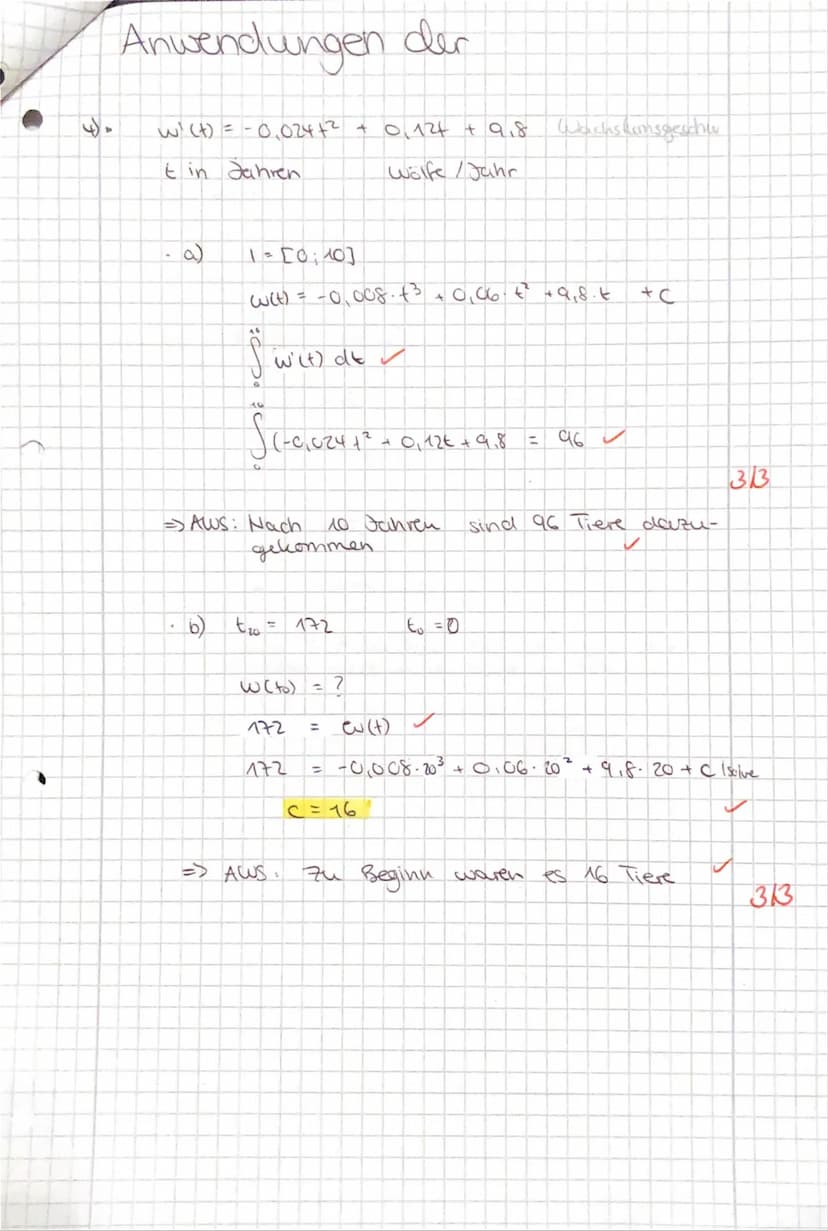 Anwendungen der
4). w'(t) = -0,024t² + 0,12t + 9,8 Wachstumsgeschw
t in Jahren Wölfe / Jahr
· a) I = [0; 10]
w(t) = -0,008·t³ + 0,06·t² + 9,8·t + c
10
∫ w'(t) dt ✓
0
10
∫(-0,024t² + 0,12t + 9,8 = 96 ✓
0
3/3
=> AWS: Nach 10 Jahren sind 96 Tiere dazu-
gekommen ✓
· b) t₂₀ = 172 t₀ = 0
w(t₀) = ?
172 = w(t) ✓
172 = -0,008·20³ + 0,06·20² + 9,8·20 + C |solve
c = 16 ✓
=> AWS: Zu Beginn waren es 16 Tiere ✓
3/3